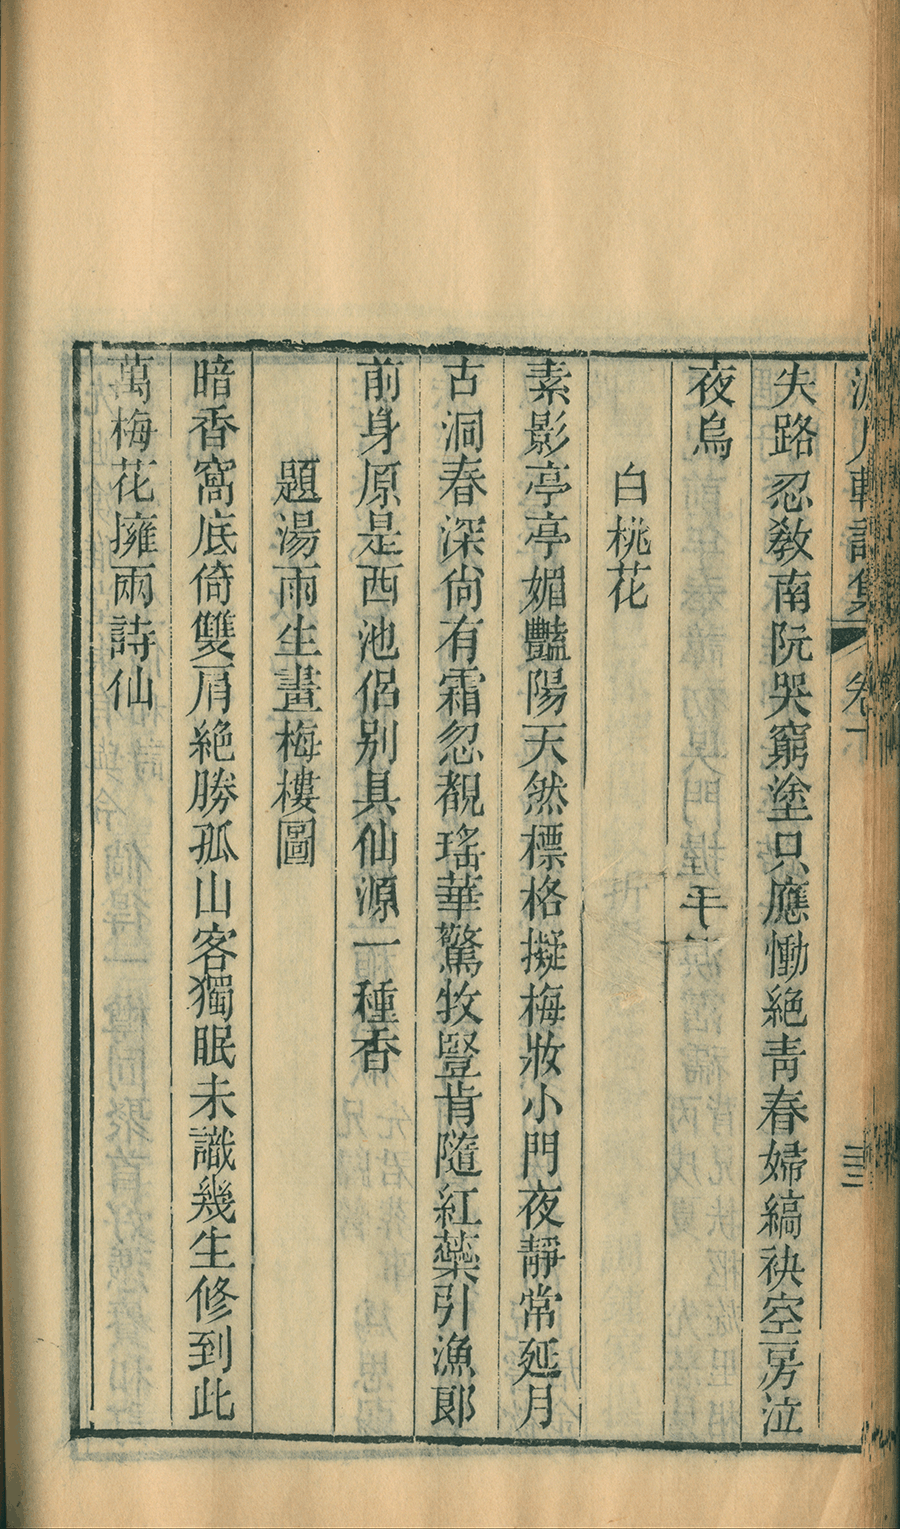 軒詩集 卷下
失路忍敎南阮哭窮塗只應慟絶靑春婦縞袂空房泣
夜烏
白桃花
素影亭亭媚豔陽天然標格擬梅妝小門夜靜常延月
古洞春深尙有霜忽覩瑤華驚牧豎肯隨紅蘂引漁郞
前身原是西池侶别具仙源一種香
題湯雨生畫梅樓圖
暗香窩底倚雙肩絶勝孤山客獨眠未識幾生修到此
萬梅花擁兩詩仙